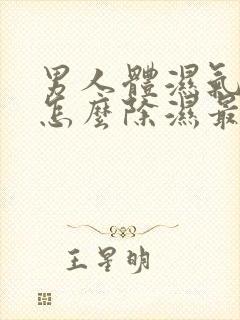 男人體濕氣
怎麼除濕最
王星明